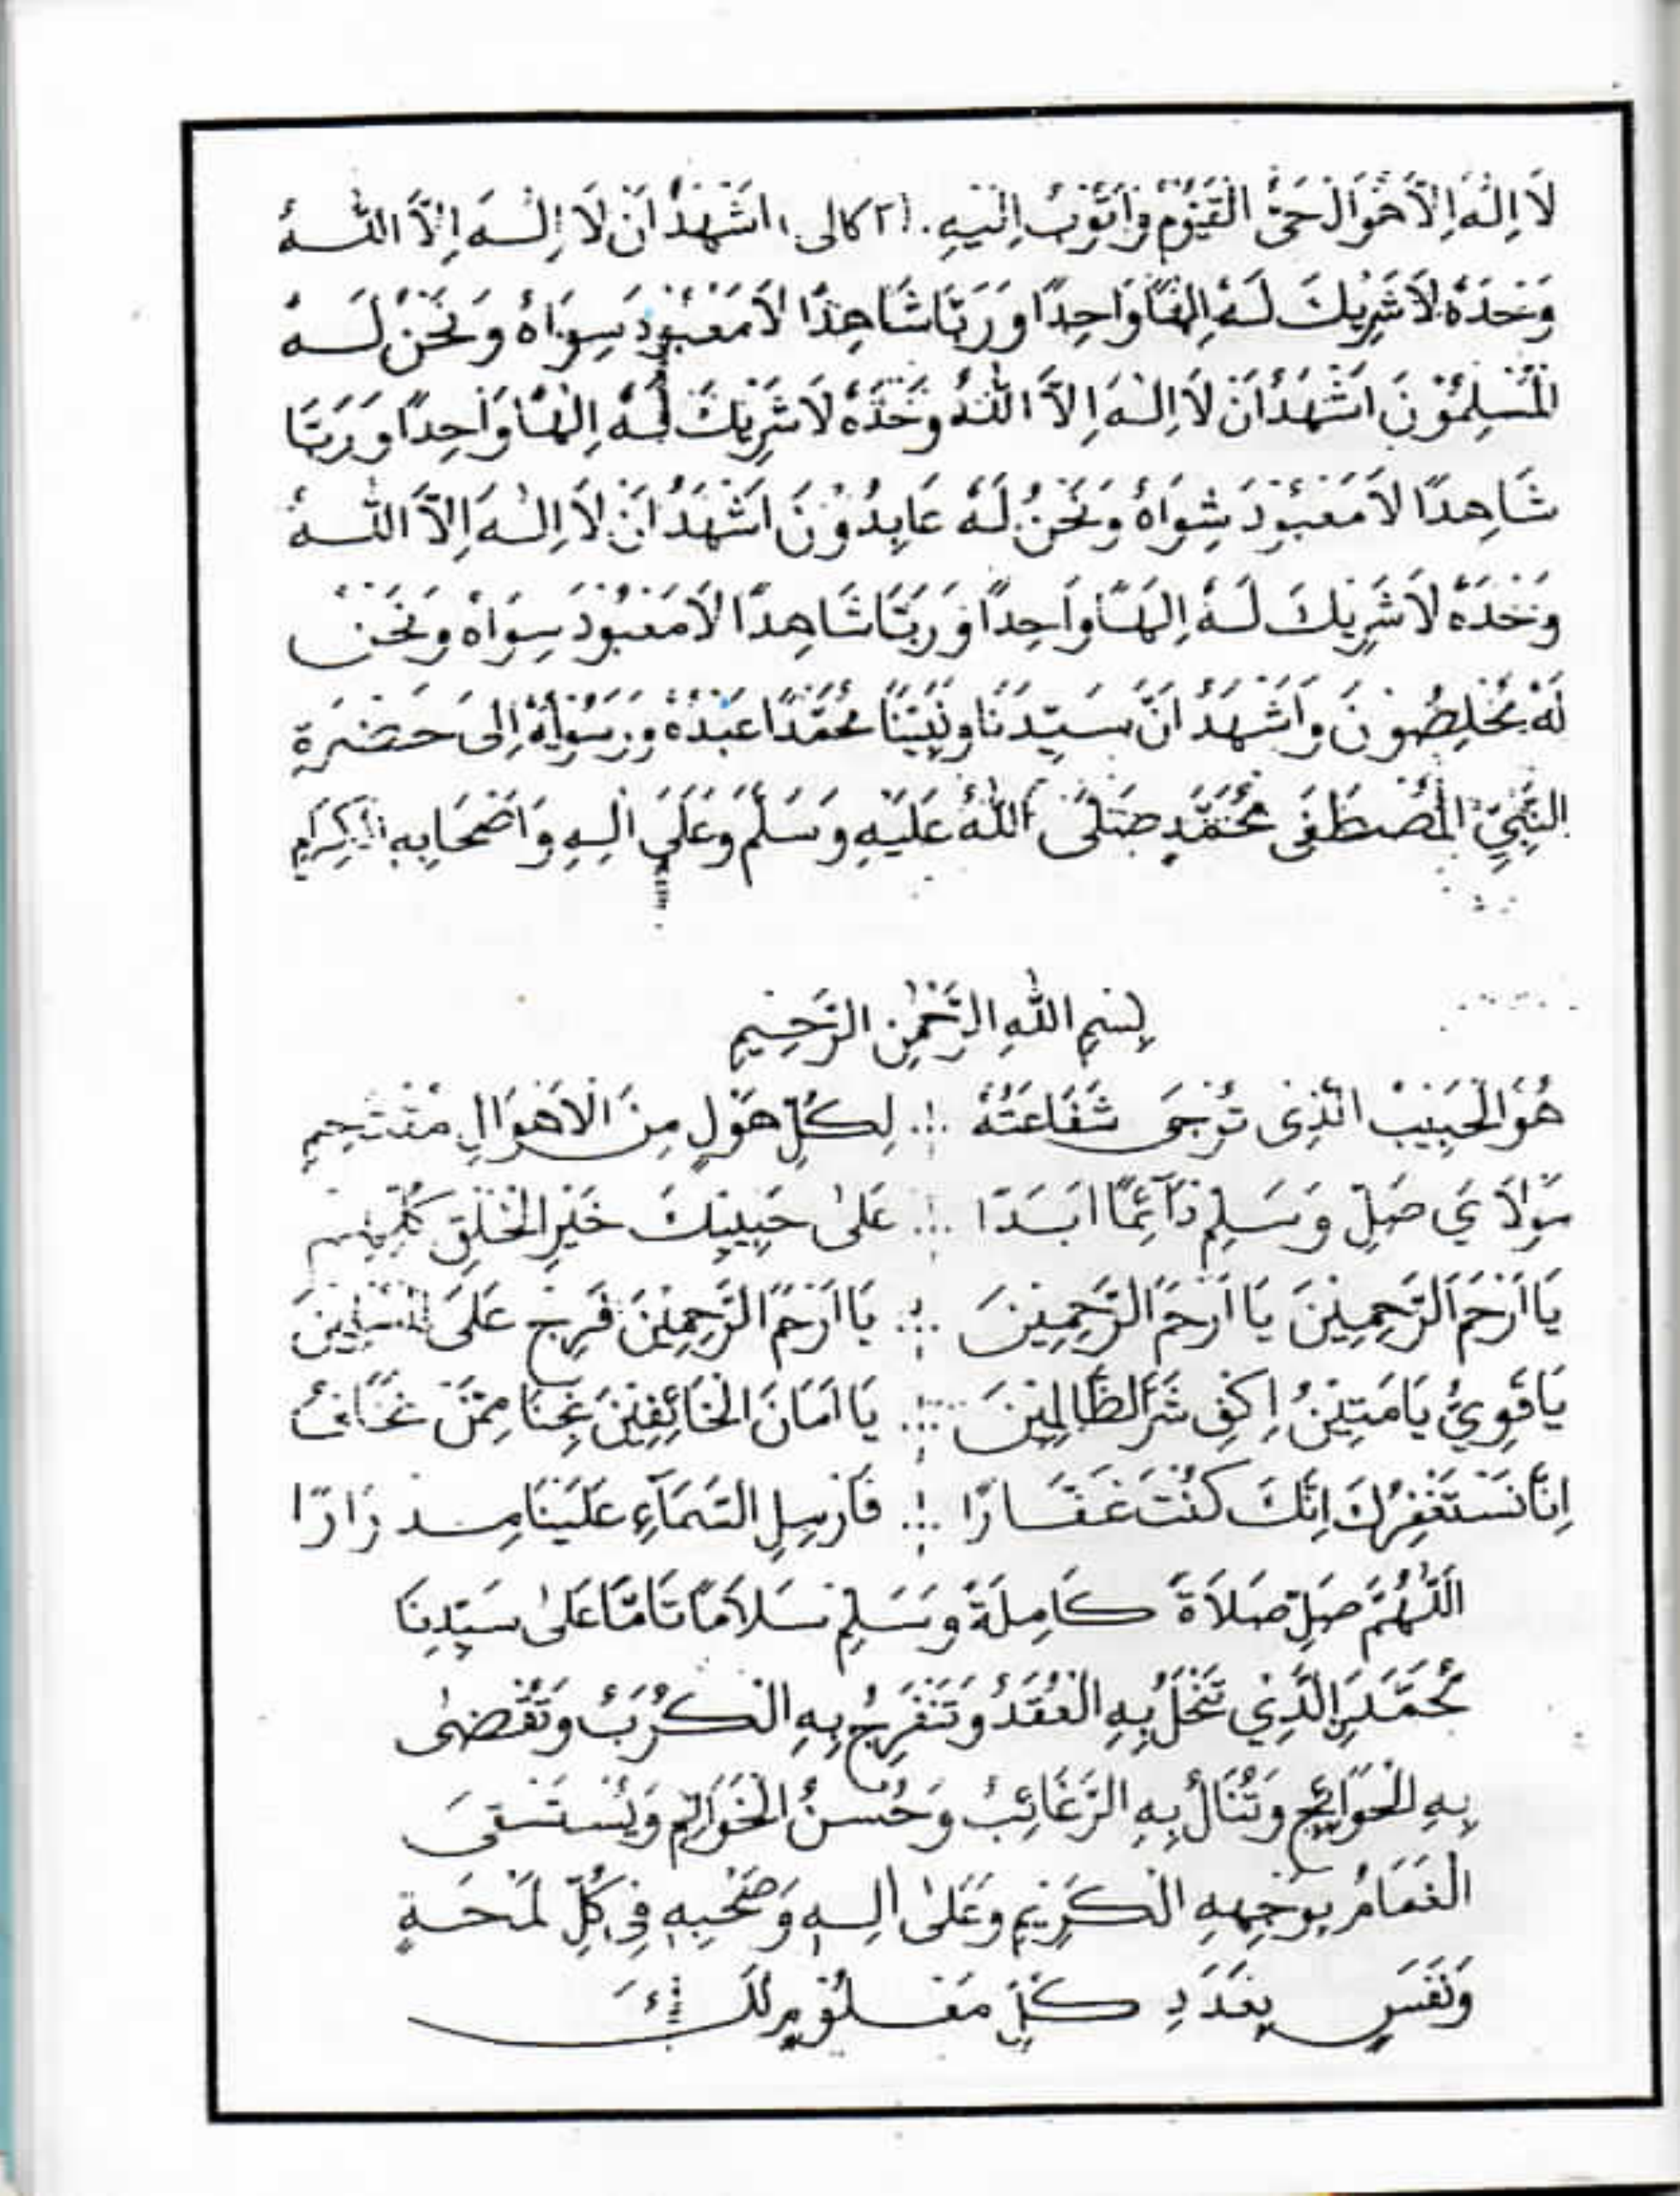 لَا اِلٰهَ اِلَّا هُوَ الْحَيُّ الْقَيُّوْمُ وَاَتُوْبُ اِلَيْهِ. (٢ كالى) اَشْهَدُ اَنْ لَا اِلٰهَ اِلَّا اللّٰهُ
وَحْدَهُ لَا شَرِيْكَ لَهُ اِلٰهًا وَاحِدًا وَرَبًّا شَاهِدًا لَا مَعْبُوْدَ سِوَاهُ وَنَحْنُ لَهُ
الْمُسْلِمُوْنَ اَشْهَدُ اَنْ لَا اِلٰهَ اِلَّا اللّٰهُ وَحْدَهُ لَا شَرِيْكَ لَهُ اِلٰهًا وَاَحِدًا وَرَبًّا
شَاهِدًا لَا مَعْبُوْدَ سِوَاهُ وَنَحْنُ لَهُ عَابِدُوْنَ اَشْهَدُ اَنْ لَا اِلٰهَ اِلَّا اللّٰهُ
وَحْدَهُ لَا شَرِيْكَ لَهُ اِلٰهًا وَاَحِدًا وَرَبًّا شَاهِدًا لَا مَعْبُوْدَ سِوَاهُ وَنَحْنُ
لَهُ مُخْلِصُوْنَ وَاَشْهَدُ اَنَّ سَيِّدَنَا وَنَبِيَّنَا مُحَمَّدًا عَبْدُهُ وَرَسُوْلُهُ اِلَى حَضْرَةِ
النَّبِيِّ الْمُصْطَفَى مُحَمَّدٍ صَلَّى اللّٰهُ عَلَيْهِ وَسَلَّمَ وَعَلَى اٰلِهِ وَاَصْحَابِهِ الْكِرَامِ
بِسْمِ اللّٰهِ الرَّحْمٰنِ الرَّحِيْمِ
هُوَ الْحَبِيْبُ الَّذِى تُرْجَى شَفَاعَتُهُ ∴ لِكُلِّ هَوْلٍ مِنَ الْاَهْوَالِ مُقْتَحِمِ
مَوْلَايَ صَلِّ وَسَلِّمْ دَآئِمًا اَبَدًا ∴ عَلٰى حَبِيْبِكَ خَيْرِ الْخَلْقِ كُلِّهِمْ
يَا اَرْحَمَ الرَّحِمِيْنَ يَا اَرْحَمَ الرَّحِمِيْنَ ∴ يَا اَرْحَمَ الرَّحِمِيْنَ فَرِّجْ عَلَى الْمُسْلِمِيْنَ
يَا قَوِيُّ يَا مَتِيْنُ اِكْفِ شَرَّ الظَّالِمِيْنَ ∴ يَا اَمَانَ الْخَائِفِيْنَ نَجِّنَا مِمَّنْ نَخَافُ
اِنَّا نَسْتَغْفِرُكَ اِنَّكَ كُنْتَ غَفَّارًا ∴ فَاَرْسِلِ السَّمَآءِ عَلَيْنَا مِدْرَارًا
اَللّٰهُمَّ صَلِّ صَلَاةً كَامِلَةً وَسَلِّمْ سَلَامًا تَامًّا عَلٰى سَيِّدِنَا
مُحَمَّدِنِ الَّذِي تَنْحَلُّ بِهِ الْعُقَدُ وَتَنْفَرِجُ بِهِ الْكُرَبُ وَتُقْضٰى
بِهِ الْحَوَائِجُ وَتُنَالُ بِهِ الرَّغَائِبُ وَحُسْنُ الْخَوَاتِمِ وَيُسْتَسْقَى
الْغَمَامُ بِوَجْهِهِ الْكَرِيْمِ وَعَلٰى اٰلِهِ وَصَحْبِهِ فِى كُلِّ لَمْحَةٍ
وَنَفَسٍ بِعَدَدِ كُلِّ مَعْلُوْمٍ لَكَ